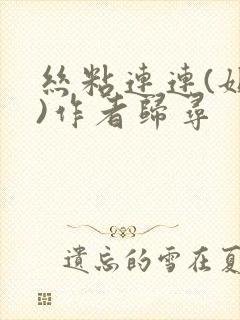 絲粘連連(
)作者歸尋
遺忘的雪在夏